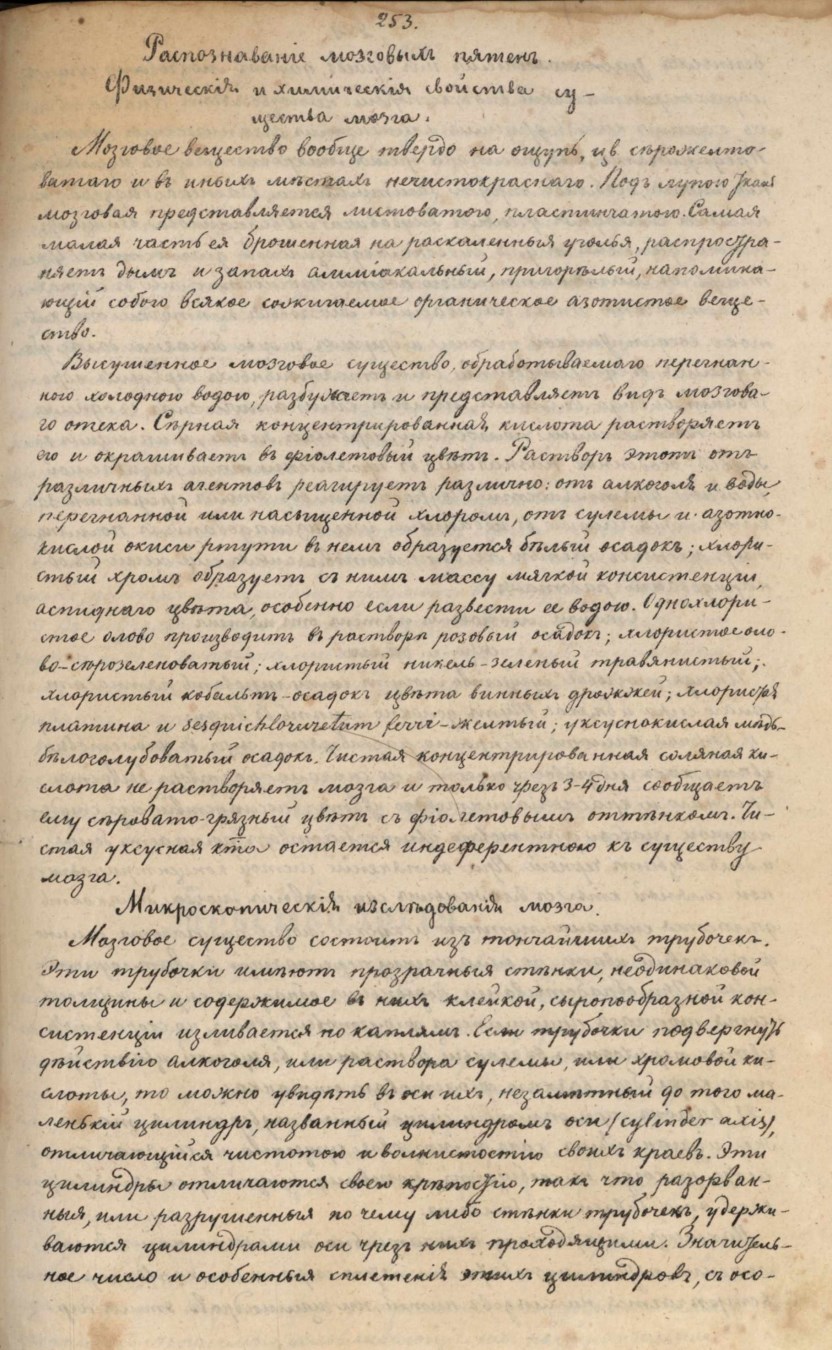 253.
Распознаваніе мозговыхъ пятенъ.
Физическія и химическія свойства су-
щества мозга.
Мозговое вещество вообще твердо на ощупь, цв сѣрожелто-
ватаго и въ иныхъ мѣстахъ нечистокраснаго. Подъ лупою ткань
мозговая представляется листоватою, пластинчатою. Самая
малая часть ея брошенная на раскаленныя уголья, распростра-
няетъ дымъ и запахъ амміакальный, пригорѣлый, напомина-
ющій собою всякое сожигаемое органическое азотистое веще-
ство.
Высушенное мозговое существо, обработываемаго перегнан-
ною холодною водою, разбухаетъ и представляетъ видъ мозгова-
го отека. Сѣрная концентрированная кислота растворяетъ
его и окрашиваетъ въ фіолетовый цвѣтъ. Растворъ этотъ отъ
различныхъ агентовъ реагируетъ различно: отъ алкоголя и воды
перегнанной или насыщенной хлоромъ, отъ сулемы и азотно-
кислой окиси ртути въ немъ образуется бѣлый осадокъ; хлори-
стый хромъ образуетъ съ нимъ массу мягкой консистенціи,
аспиднаго цвѣта, особенно если развести ее водою. Однохлори-
стое олово производитъ въ растворѣ розовый осадокъ; хлористое оло-
во-сѣрозеленоватый; хлористый никель-зеленый травянистый;
хлористый кобальтъ-осадокъ цвѣта винныхъ дрожжей; хлористая
платина и sesquichloruretum ferri-желтый; уксуснокислая мѣдь-
бѣлоголубоватый осадокъ. Чистая концентрированная соляная ки-
слота не растворяетъ мозга и только чрезъ 3-4 дня сообщаетъ
ему сѣровато-грязный цвѣтъ съ фіолетовымъ оттѣнкомъ. Чи-
стая уксусная кта остается индеферентною къ существу
мозга.
Микроскопическія изслѣдованія мозга.
Мозговое существо состоитъ изъ тончайшихъ трубочекъ.
Эти трубочки имѣютъ прозрачныя стѣнки, неодинаковой
толщины и содержимое въ нихъ клейкой, сыропообразной кон-
систенціи изливается по каплямъ. Если трубочки подвергнуть
дѣйствію алкоголя, или раствора сулемы, или хромовой ки-
слоты, то можно увидѣть въ оси ихъ, незамѣтный до того ма-
ленькій цилиндръ, названный цилиндромъ оси (cylinder axis),
отличающійся чистотою и волнистостію своихъ краевъ. Эти
цилиндры отличаются своею крѣпостію, такъ что разорван-
ныя, или разрушенныя по чему либо стѣнки трубочекъ, удержи-
ваются цилиндрами оси чрезъ нихъ проходящими. Значитель-
ное число и особенныя сплетенія этихъ цилиндровъ, съ осо-